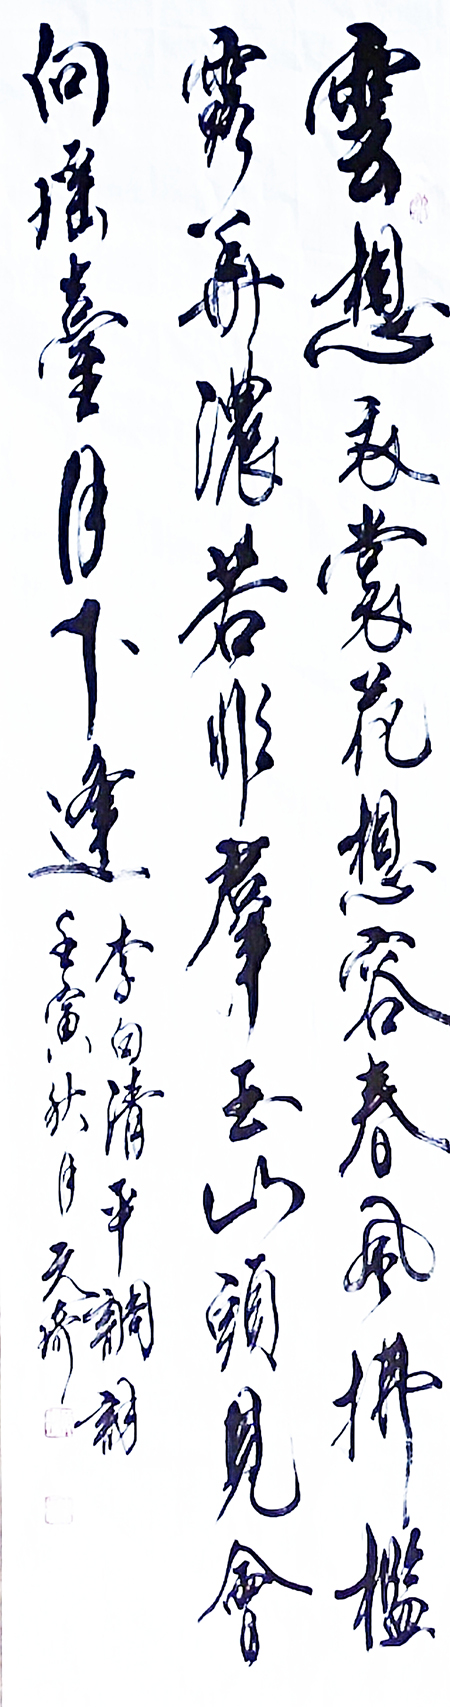 雲想衣裳花想容春風拂檻
露華濃若非羣玉山頭見會
向瑤臺月下逢
李白清平調詩
壬寅秋月天琦